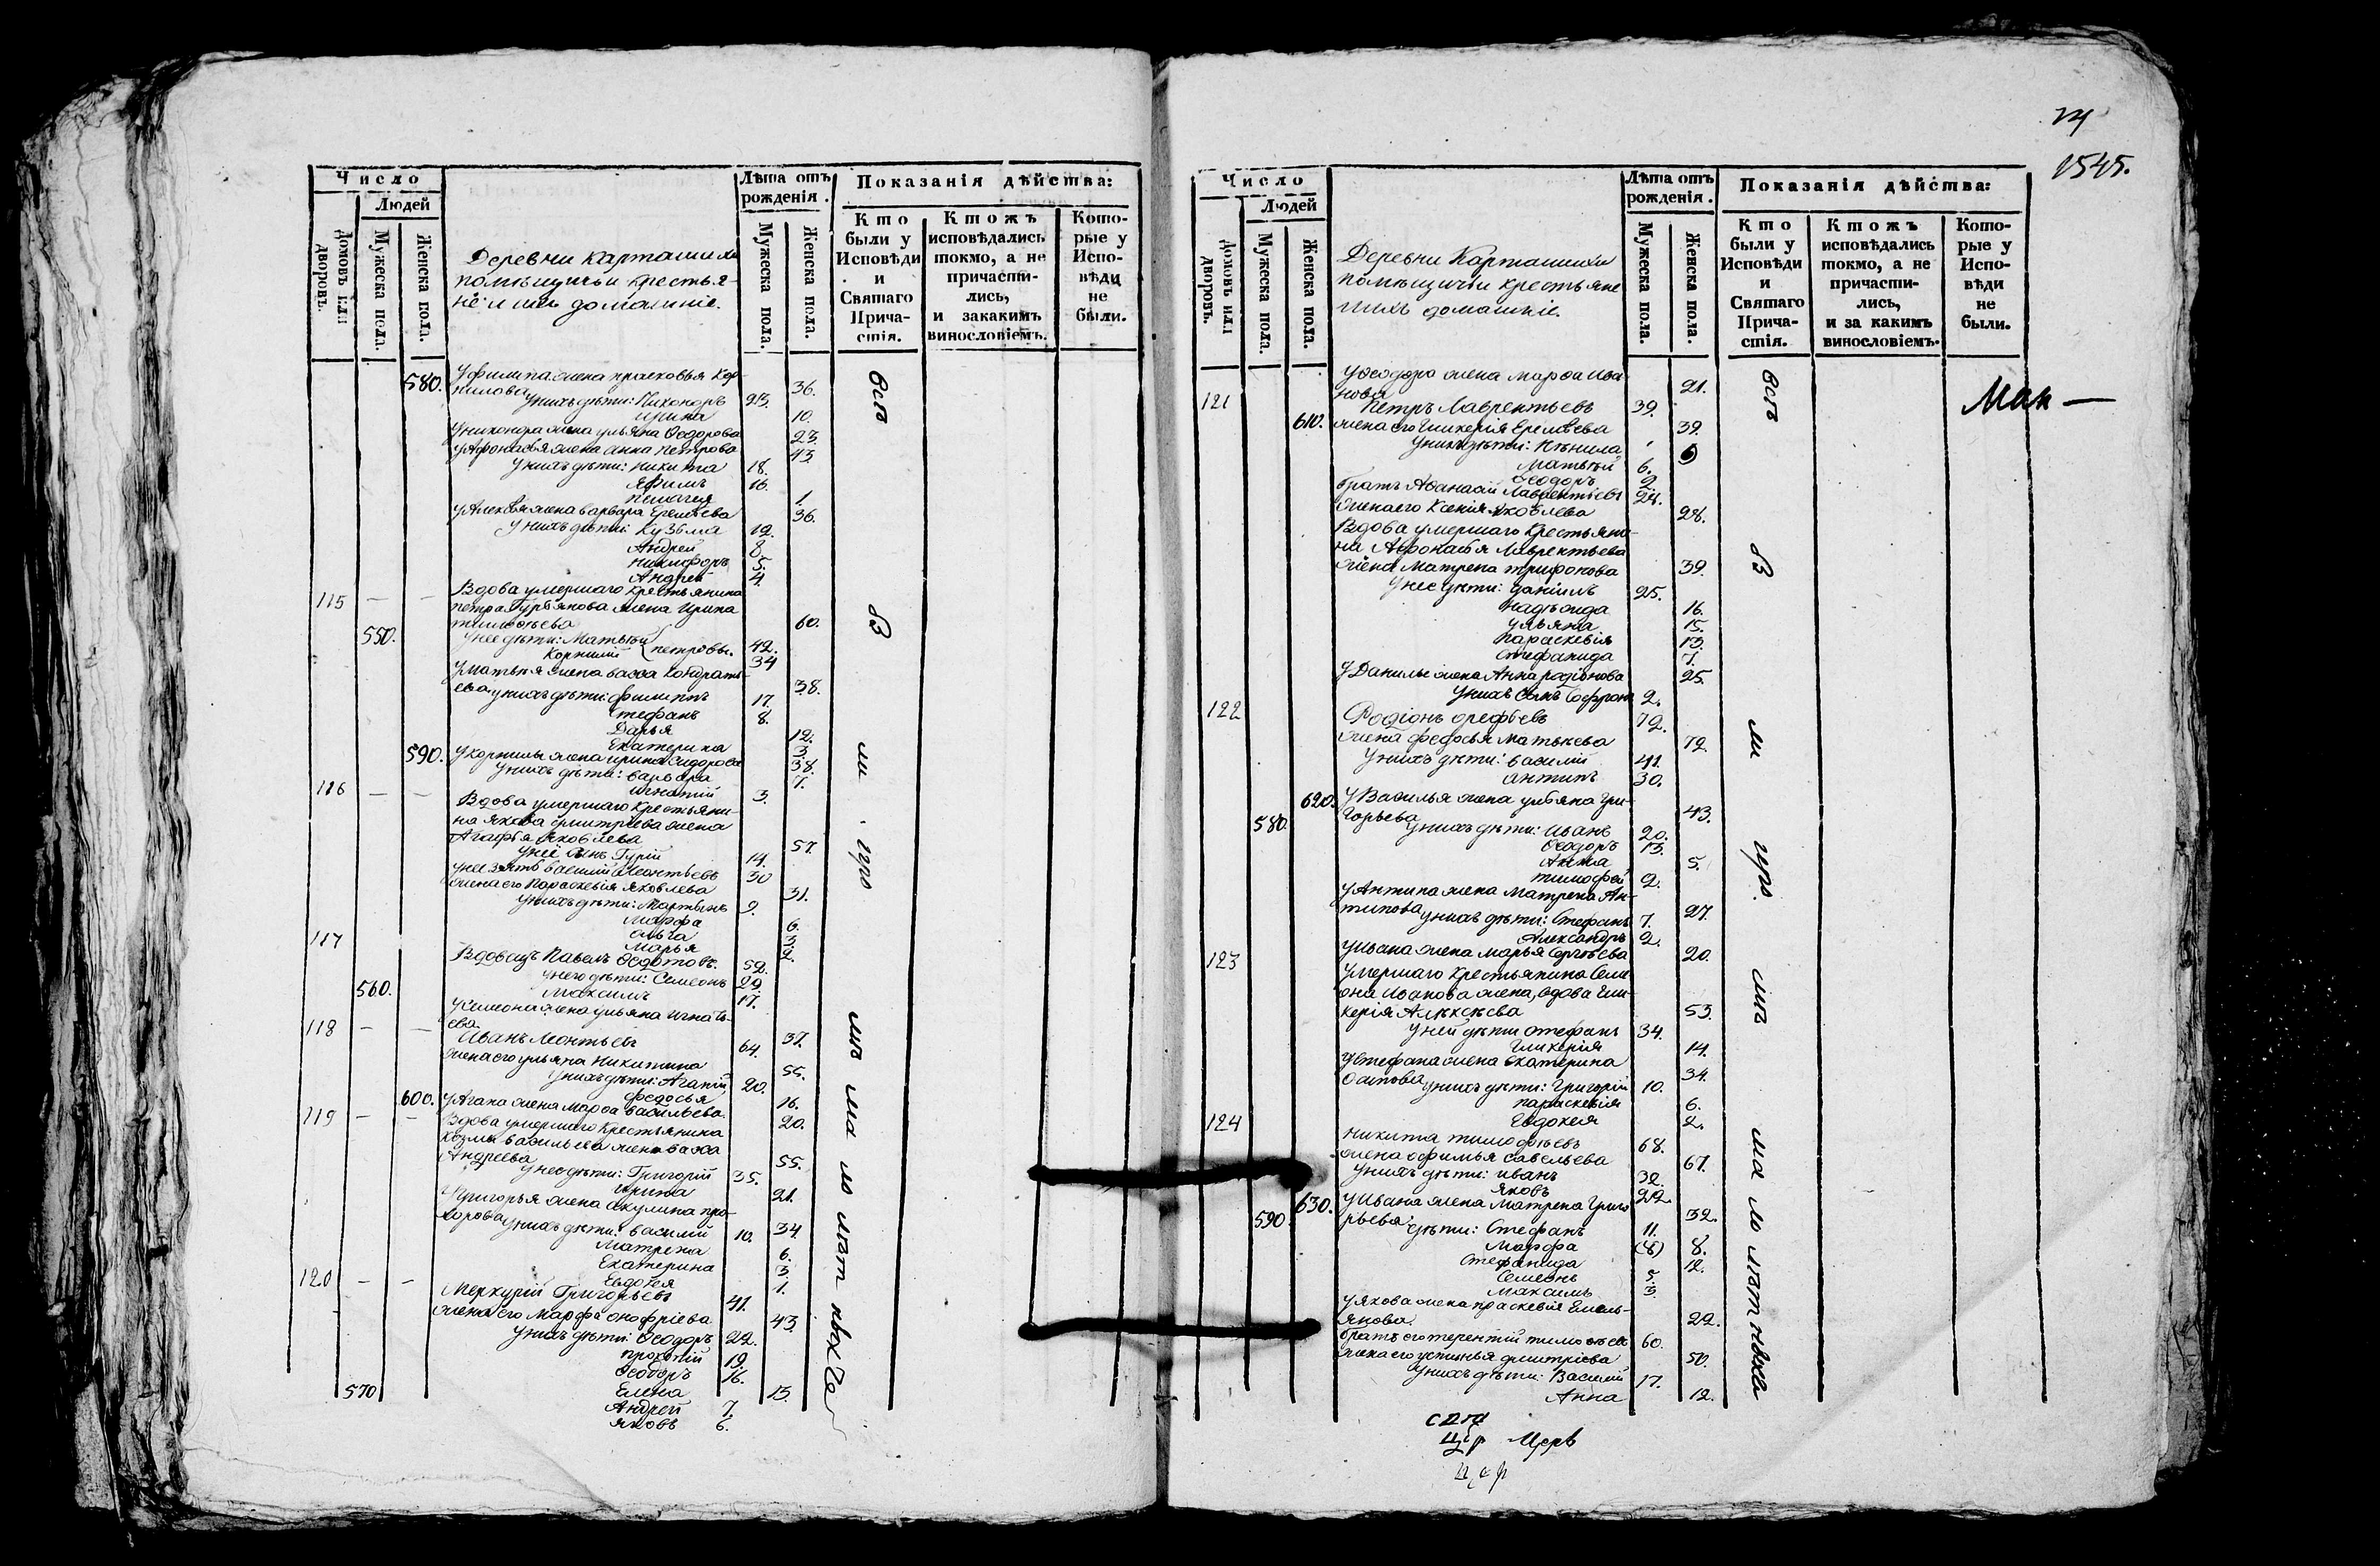 Число
Людей
Домовъ или дворовъ.
Мужеска пола.
Женска пола.
Деревни Карташихи
помѣщичьи крестья-
не и ихъ домашніе.
Лѣта отъ рожденія.
Мужеска пола.
Женска пола.
Показанія дѣйства:
Кто были у Исповѣди и Святаго Прича-стія.
Ктожъ исповѣдались токмо, а не причасти-лись, и закакимъ винословіемъ.
Кото-рые у Испо-вѣди не были.
580. У филипа жена прасковья Кор-
нилова 36.
У нихъ дѣти: Никоноръ 23.
ирина 10.
У никонора жена ульяна Ѳедорова 23.
У Афонасья жена анна петрова 43.
У нихъ дѣти: никита 18.
Яфимъ 16.
Пелагея 1.
У Алексѣя жена варвара Еремѣева 36.
У нихъ дѣти: Кузьма 12.
Андрей 8.
никифоръ 5.
Андрей 4.
115 — — Вдова умершаго крестьянина
петра Гурьянова жена Ирина
тимоѳеева 60.
550. У нее дѣти: Матвѣй петровы. 42.
Корнилій 34
У матвѣя жена васса Кондрать-
ева 38.
у нихъ дѣти: филиппъ 17.
Стефанъ 8.
Дарья 12.
Екатерина 3.
590. У корнилы жена ирина Сидорова 38.
У нихъ дѣти: варвара 7.
игнатій 3.
116 — — Вдова умершаго крестьяни-
на якова дмитріева жена
Агафья Яковлева 57.
У ней сынъ Гурій 14.
У нее зять василій Леонтьевъ 30
жена его Параскевія Яковлева 31.
У нихъ дѣти: Мартынъ 9.
Марфа 6.
ольга 3.
Марья 2.
117 Вдовецъ Павелъ Ѳедотовъ. 52.
У него дѣти: Семеонъ 29.
560. Максимъ 17.
У семеона жена ульяна игнать-
ева 37.
118 — — Иванъ Леонтьевъ 64.
жена его ульяна Никитина 55.
У нихъ дѣти: Агапій 20.
федосья 16.
600. У Агапа жена Марѳа васильева. 20.
119 — — Вдова умершаго крестьянина
козмы васильева жена васса
Андреева 55.
У нее дѣти: Григорій 35.
Ирина 21.
У григорья жена акулина про-
хорова 34.
у нихъ дѣти: василій 10.
Матрена 6.
Екатерина 3.
Евдокея 1.
120 — — Меркурій Григорьевъ 41.
жена его Марфа онофріева 43.
У нихъ дѣти: Ѳеодоръ 22.
прокопій 19.
Ѳеодоръ 16.
Елена 13.
570 Андрей 7.
яковъ 6.
всѣ
24
1545.
Число
Людей
Домовъ или дворовъ.
Мужеска пола.
Женска пола.
Деревни Карташихи
помѣщичьи крестьяне
и ихъ домашніе.
Лѣта отъ рожденія.
Мужеска пола.
Женска пола.
Показанія дѣйства:
Кто были у Исповѣди и Святаго Прича-стія.
Ктожъ исповѣдались токмо, а не причасти-лись, и за какимъ винословіемъ.
Кото-рые у Испо-вѣди не были.
У ѳеодора жена Марѳа ива-
нова 21.
121 Петръ Лаврентьевъ 39.
610. жена его гликерия Еремѣева 39.
Матвѣй 6.
Ѳеодоръ 2.
братъ Аѳанасій Лаврентьевъ 28.
жена его Ксенія яковлева 28.
Вдова умершаго крестьяни-
на Афонасья Лаврентьева
жена Матрена трифонова 39.
У нее дѣти: даніилъ 25.
надежда 16.
ульяна 15.
Параскевія 13.
Стефанида 7.
У Данилы жена Анна родіонова 25.
У нихъ сынъ Софронъ 2.
122 Родіонъ орефьевъ 72.
жена федосья Матвѣева 72.
У нихъ дѣти: василій 41.
антипъ 30.
620. У Василья жена ульяна Гри-
горьева 43.
580. У нихъ дѣти: иванъ 20.
Ѳеодоръ 13.
Анна 5.
тимофей 2.
У Антипа жена Матрена Ан-
типова 27.
у нихъ дѣти: Стефанъ 7.
Александръ 2.
У ивана жена марья Сергѣева 20.
123 Умершаго крестьянина Семе-
она иванова жена, вдова гли-
керія Алексѣева 53.
У ней дѣти стефанъ 34.
гликерія 14.
У стефана жена Екатерина
осипова 34.
у нихъ дѣти: Григорій 10.
параскевія 6.
Евдокея 2.
124 Никита тимоѳеевъ 68.
жена ефимья савельева 67.
У нихъ дѣти: иванъ 32.
Яковъ 22.
630. У ивана жена Матрена Григо
рьева 32.
590. дѣти: Стефанъ 11.
Марфа (8) 8.
Стефанида 12.
Семеонъ 5.
Максимъ 3.
У якова жена праскевія Емель-
янова 22.
братъ его терентій тимоѳеевъ 60.
жена его устинья дмитріева 50.
У нихъ дѣти: Василій 17.
Анна 12.
всѣ